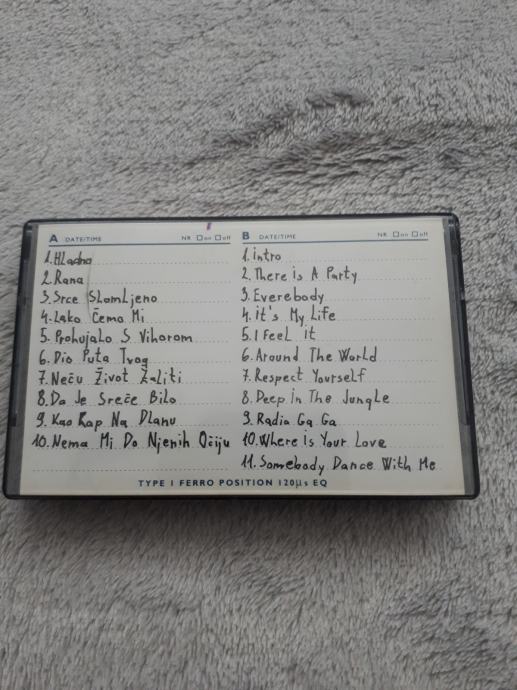 A DATE/TIME NR on off
1. Hladna
2. Rana
3. Srce Slomljeno
4. Lako Ćemo Mi
5. Prohujalo S Vihorom
6. Dio Puta Tvog
7. Neču Život Žaliti
8. Da Je Sreče Bilo
9. Kao Kap Na Dlanu
10. Nema Mi Do Njenih Očiju
B DATE/TIME NR on off
1. intro
2. There is A Party
3. Everebody
4. it's My Life
5. I Feel it
6. Around The World
7. Respect Yourself
8. Deep in The Jungle
9. Radia Ga Ga
10. Where is Your Love
11. Somebody Dance With Me
TYPE I FERRO POSITION 120µs EQ